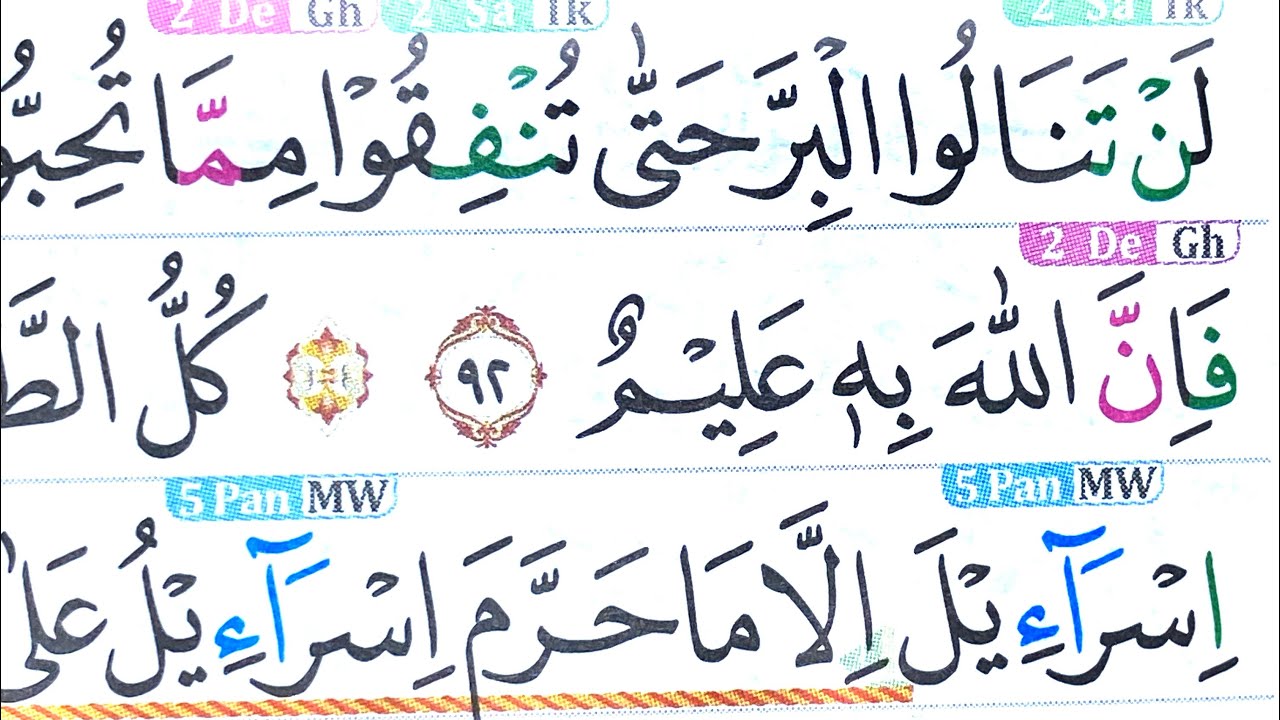 2 De Gh 2 Sa Ik 2 Sa Ik
لَنْ تَنَالُوا الْبِرَّ حَتّٰى تُنْفِقُوْا مِمَّا تُحِبُّو
2 De Gh
فَاِنَّ اللّٰهَ بِهٖ عَلِيْمٌ ٩٢ كُلُّ الطَّ
5 Pan MW 5 Pan MW
اِسْرَاۤءِيْلَ اِلَّا مَا حَرَّمَ اِسْرَاۤءِيْلُ عَلٰى